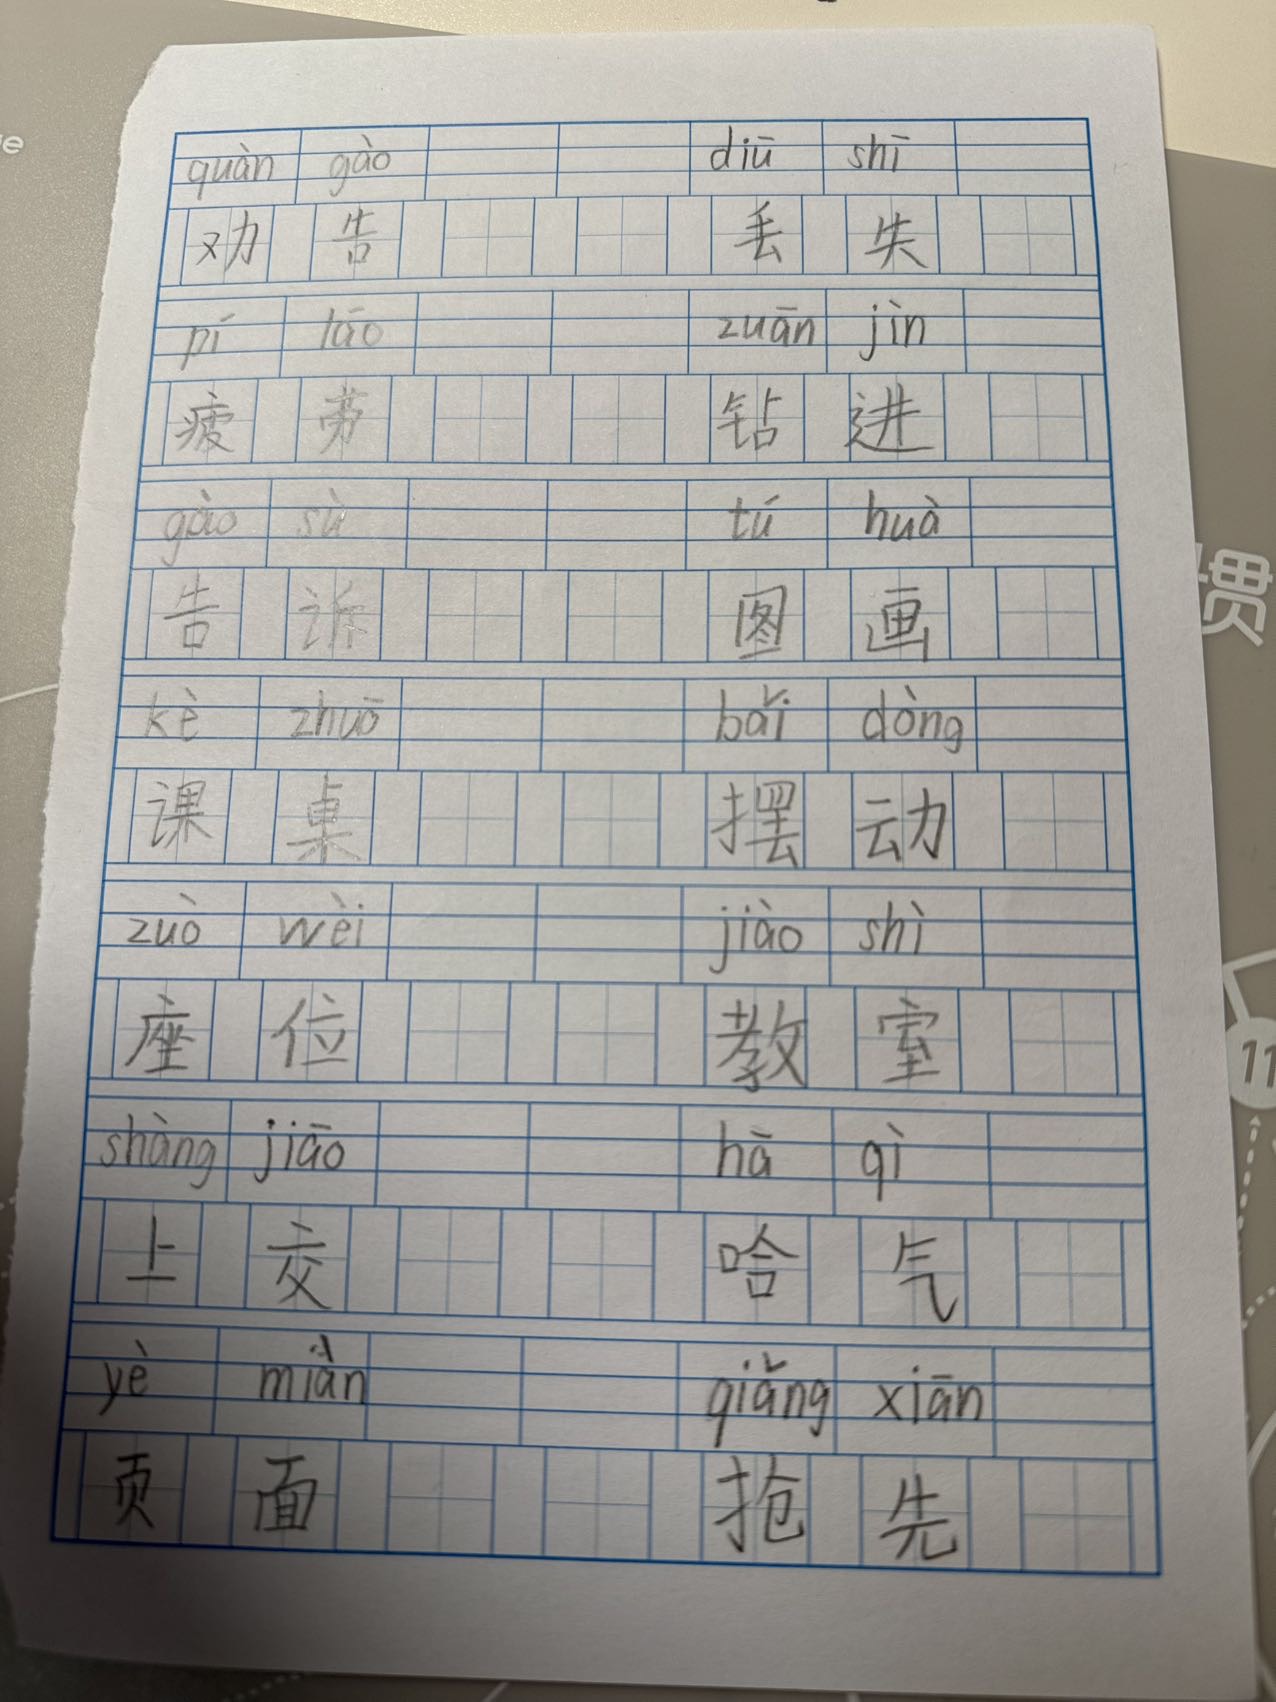 quàn gào diū shī
劝 告 丢 失
pí láo zuān jìn
疲 劳 钻 进
gào sù tú huà
告 诉 图 画
kè zhuō bǎi dòng
课 桌 摆 动
zuò wèi jiào shì
座 位 教 室
shàng jiāo hā qì
上 交 哈 气
yè miàn qiǎng xiān
页 面 抢 先
惯
11